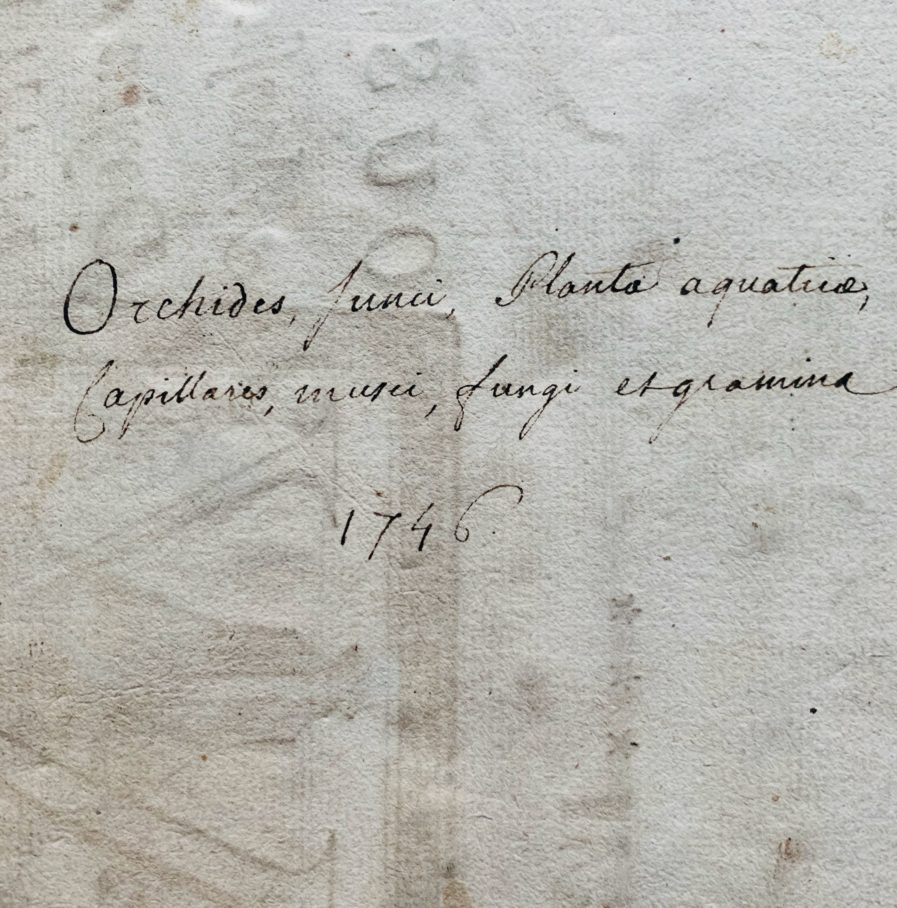 Orchides, funci, Planta aquaticæ,
Capillares, musci, fungi et gramina
1746